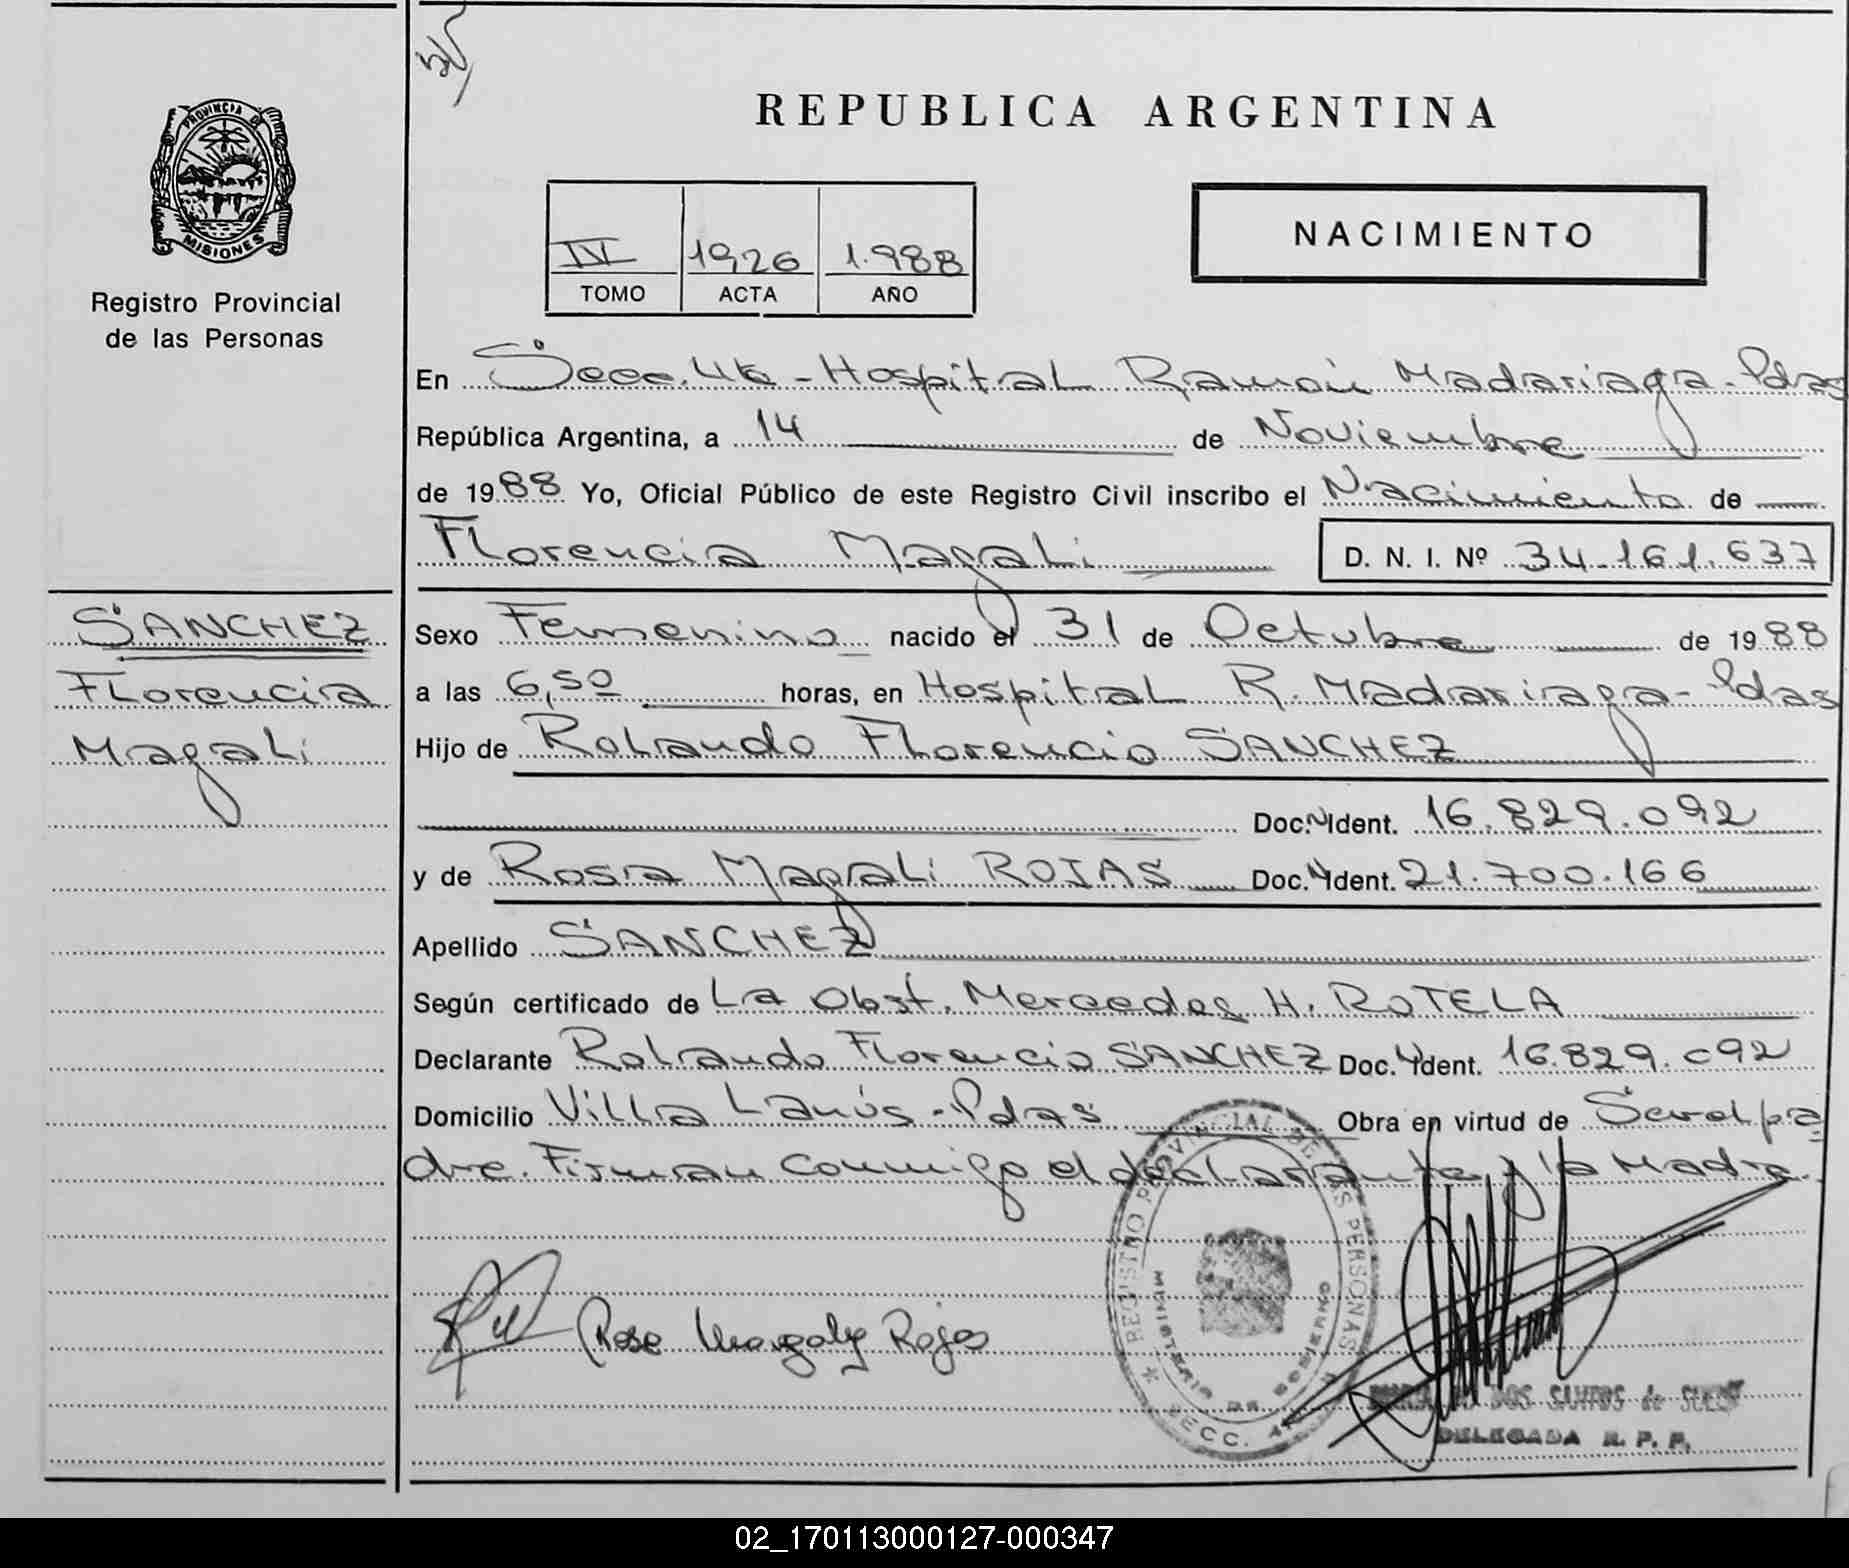 PROVINCIA DE
MISIONES
Registro Provincial
de las Personas
SANCHEZ
Florencia
Magali
REPUBLICA ARGENTINA
IV 1926 1.988
TOMO ACTA AÑO
NACIMIENTO
En Secc. 4ta - Hospital Ramón Madariaga - Pdas
República Argentina, a 14 de Noviembre
de 1988 Yo, Oficial Público de este Registro Civil inscribo el Nacimiento de
Florencia Magali D. N. I. Nº 34.161.637
Sexo Femenino nacido el 31 de Octubre de 1988
a las 6,50 horas, en Hospital R. Madariaga - Pdas
Hijo de Rolando Florencio SANCHEZ
Doc. Ident. 16.829.092
y de Rosa Magali ROJAS Doc. Ident. 21.700.166
Apellido SANCHEZ
Según certificado de La Obst. Mercedes H. ROTELA
Declarante Rolando Florencio SANCHEZ Doc. Ident. 16.829.092
Domicilio Villa Lanús - Pdas Obra en virtud de Ser el pa
dre. Firman conmigo el declarante y la Madre.
Rosa Magaly Rojas
REGISTRO PROVINCIAL DE LAS PERSONAS
MINISTERIO DE GOBIERNO
SECC. 4
DOS SANTOS de
DELEGADA R. P. P.
02_170113000127-000347